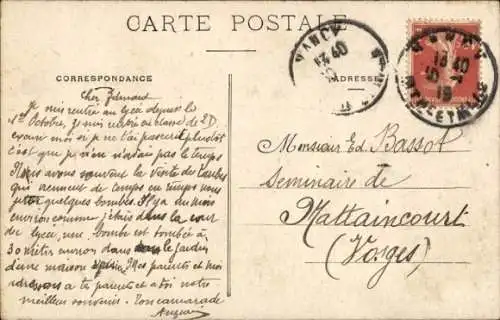 CARTE POSTALE
CORRESPONDANCE
ADRESSE
NANCY
13 40
NANCY
13 40
MEURTHE ET MLLE
Cher Edmond
Je suis rentré au lycée depuis le
1er Octobre, je suis rentré en classe de 2D.
excuse moi si je ne t'ai pas écrit plus tôt
c'est que je n'en avais pas le temps
Nous avons souvent la visite des taubes
qui viennent de temps en temps nous
jeter quelques bombes. Il y a un mois
environ comme j'étais dans la cour
du lycée, une bombe est tombée à
30 mètres environ dans le jardin
d'une maison Mes parents et moi
à tes parents et à toi notre
meilleur souvenir. Ton camarade
Monsieur Ed. Bassot
Seminaire de
Mattaincourt
(Vosges)